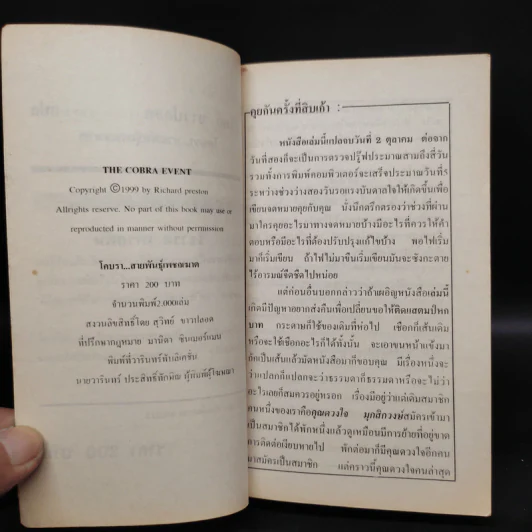 THE COBRA EVENT
Copyright ©1999 by Richard preston
Allrights reserve. No part of this book may use or
reproducted in manner without perrmission
โคบรา...สายพันธุ์เพชฌฆาต
ราคา 200 บาท
จำนวนพิมพ์2,000เล่ม
สงวนลิขสิทธิ์โดย สุวิทย์ ขาวปลอด
ที่ปรึกษากฎหมาย มานิตา ชินเมอร์แมน
พิมพ์ที่วารินทร์พับลิเคชั่น
นายวารินทร์ ประสิทธิ์ทักษิณ ผู้พิมพ์ผู้โฆษณา
คุยกันครั้งที่สิบเก้า :
หนังสือเล่มนี้แปลจบวันที่ 2 ตุลาคม ต่อจาก
วันที่สองก็จะเป็นการตรวจปรู๊ฟประมาณสามถึงสี่วัน
รวมทั้งการพิมพ์คอมพิวเตอร์จะเสร็จประมาณวันที่5
ระหว่างช่วงว่างสองวันรอแรงบันดาลใจให้เกิดขึ้นเพื่อ
เขียนจดหมายคุยกับคุณ นั่งนึกตรึกตรองว่าช่วงที่ผ่าน
มาใครคุยอะไรมาทางจดหมายบ้างมีอะไรที่ควรให้คำ
ตอบหรือมีอะไรที่ต้องปรับปรุงแก้ไขบ้าง พอไฟเริ่ม
มาก็เริ่มเขียน ถ้าไฟไม่มาขืนเริ่มเขียนมันจะซังกะตาย
ไร้อารมณ์จืดชืดไปหน่อย
แต่ก่อนอื่นบอกกล่าวว่าถ้าเผอิญหนังสือเล่มนี้
เกิดมีปัญหายากส่งคืนเพื่อเปลี่ยนขอให้ติดแสตมป์หก
บาท กระดาษก็ใช้ของเดิมที่ห่อไป เชือกก็เส้นเดิม
หรือจะใช้เชือกอะไรก็ได้ทั้งนั้น จะเอาขนหน้าแข้งมา
ถักเป็นเส้นแล้วมัดหนังสือมาก็ขอบคุณ มีเรื่องหนึ่งจะ
ว่าแปลกก็แปลกจะว่าธรรมดาก็ธรรมดาหรือจะไม่ว่า
อะไรเลยก็สมควรอยู่หรอก เรื่องมีอยู่ว่าแต่เดิมสมาชิก
คนหนึ่งของเราคือคุณดวงใจ มุกสิกวงษ์สมัครเข้ามา
เป็นสมาชิกได้พักหนึ่งแล้วดูเหมือนมีการย้ายที่อยู่ขาด
การติดต่อเงียบหายไป พักต่อมาก็มีคุณดวงใจอีกคน
มาสมัครเป็นสมาชิก แต่คราวนี้คุณดวงใจคนล่าสุด